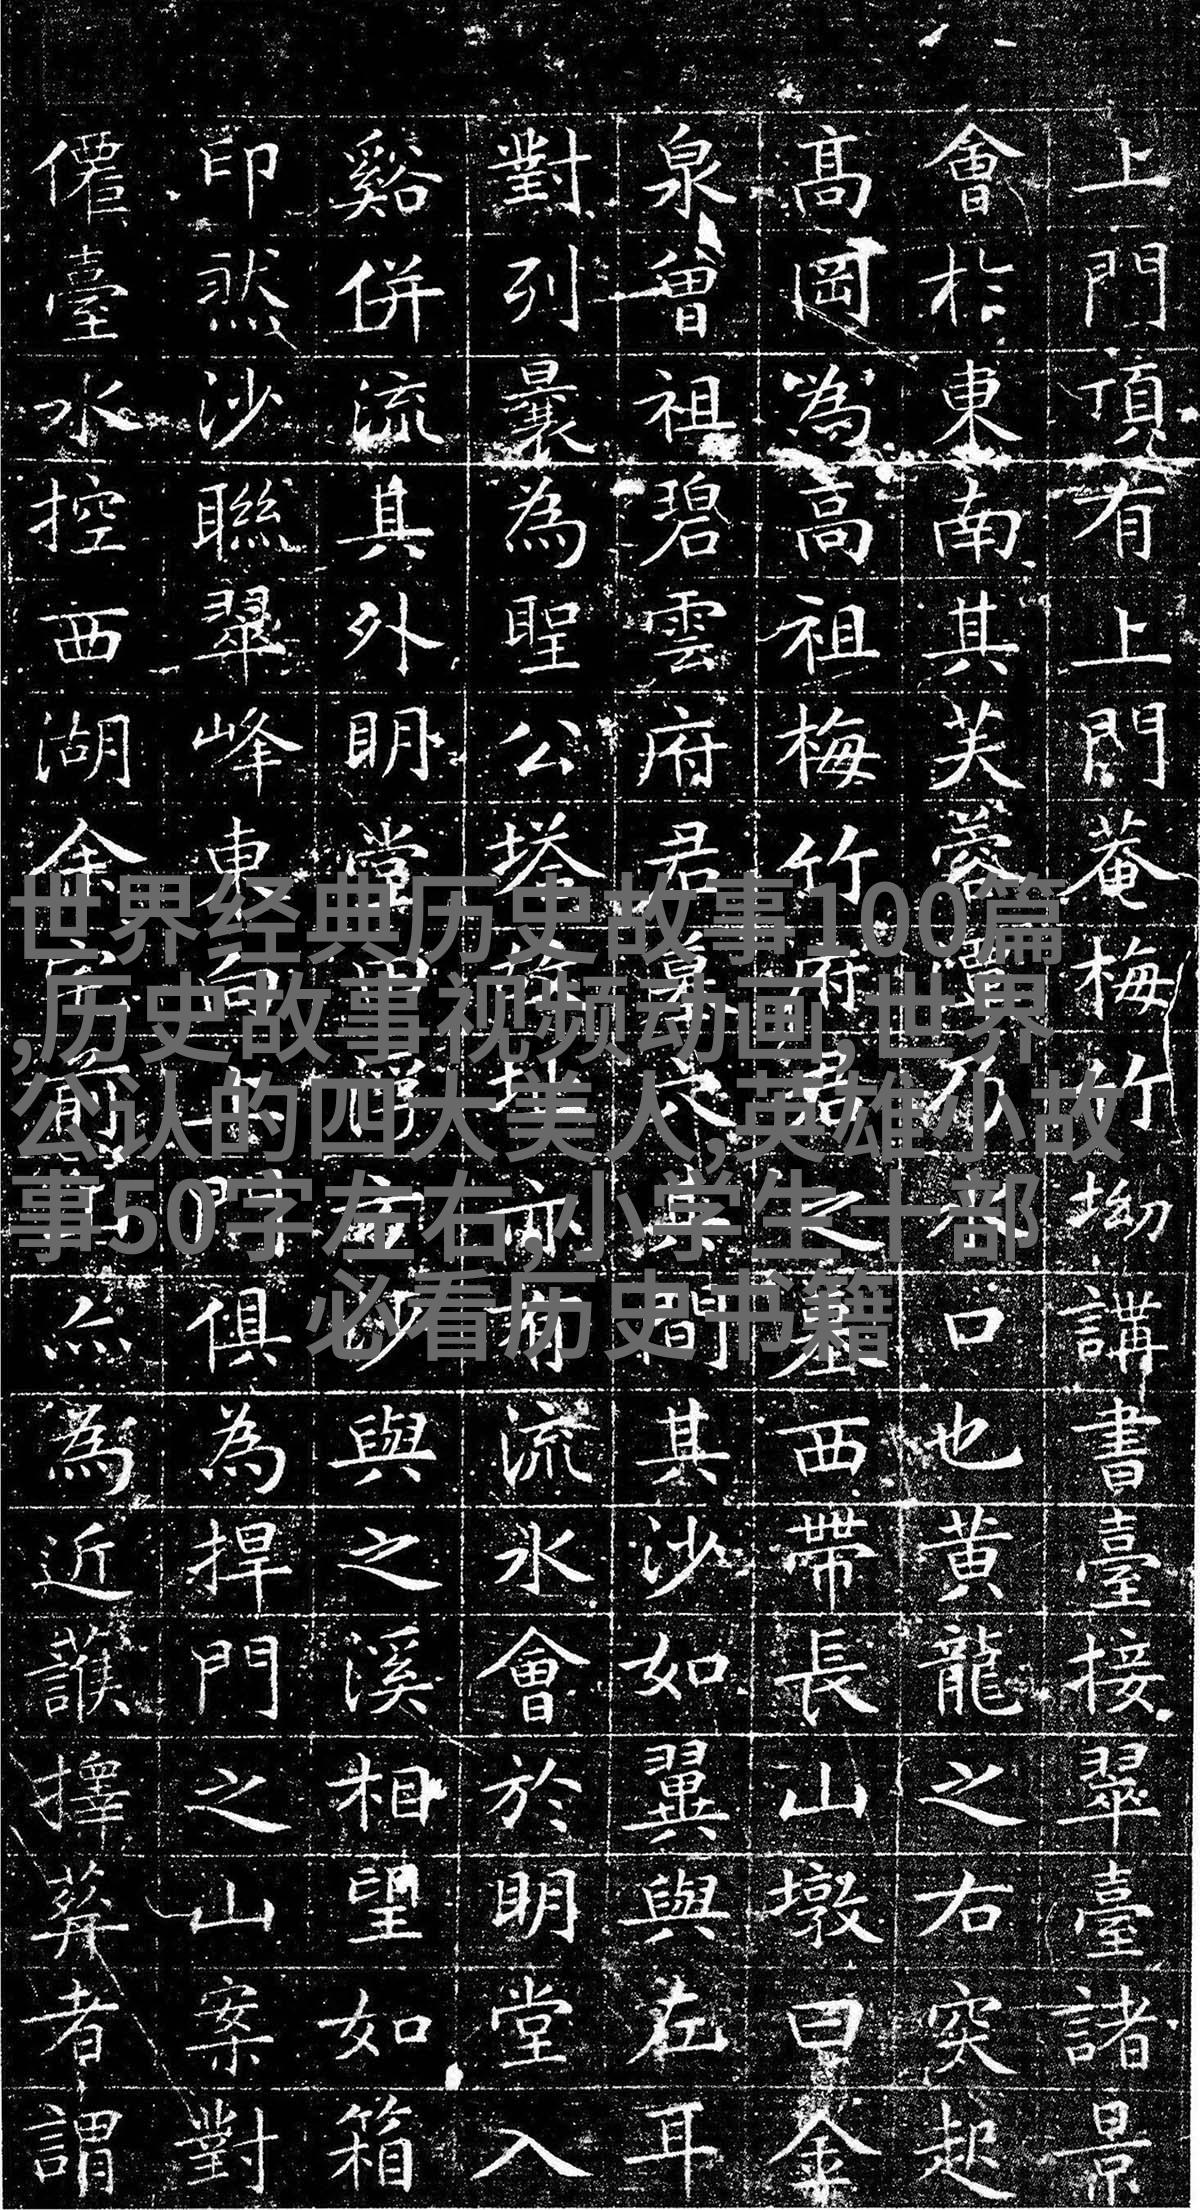 上門頂有上門菴梅竹坳講書臺接翠臺諸景
會扵東南其芙蓉乃水口也黃龍之右突起
髙岡為髙祖梅竹府君之墓西帶長山墩曰金
泉曾祖碧雲府君墓其間其沙如翼與左耳
對列曩為聖公塔前亦有流水會於明堂入
谿併流其外明堂立沙與之溪相望如箱
印然沙聯翠峰東向上門俱為捍門之山案對
僊臺水控西湖余前為近擇葬者謂
世界经典历史故事100篇
,历史故事视频动画,世界
公认的四大美人,英雄小故
事50字左右,小学生十部
必看历史书籍